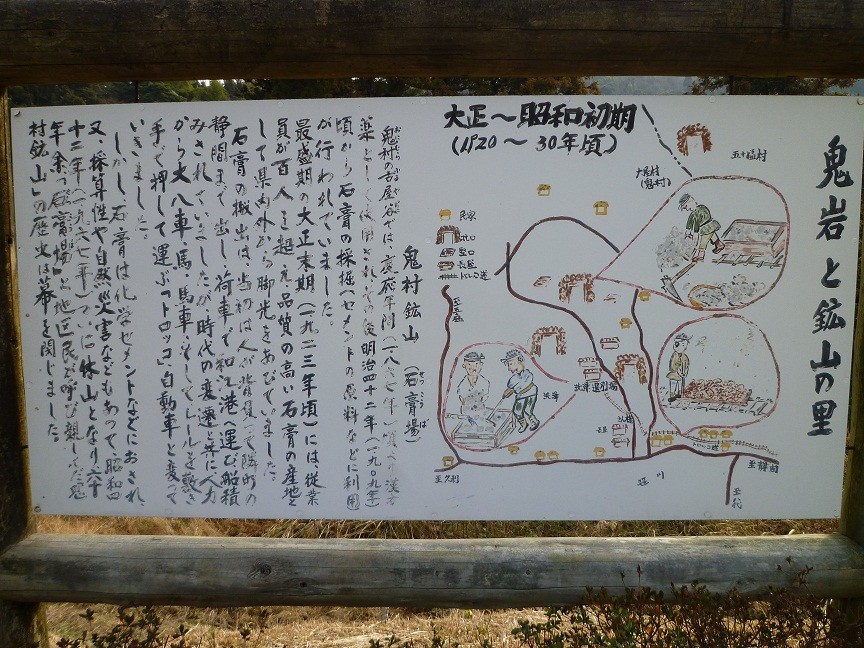 鬼岩と鉱山の里
大正～昭和初期
(1920～30年頃)
五十猛村
大屋村
(鬼村)
民家
坑口
長屋
トロッコ道
洗浄
長屋
トロッコ道
至久利
至静間
至
鬼村鉱山(石膏場)
せっこうば
鬼村古屋谷では、慶応年間(一八六七年)頃より漢方
薬として使用され、その後明治四十二年(一九〇九年)
頃から石膏の採掘(セメントの原料などに利用)
が行われていました。
最盛期の大正末期(一九二三年頃)には、従業
員が百人を超え、品質の高い石膏の産地と
して県内外から脚光をあびていました。
石膏の搬出は、当初は人が背負って隣町の
静間まで出し、荷車で和江港へ運び船積
みされていましたが、時代の変遷と共に人力
から大八車、馬、馬車、そしてレールを敷き
手で押して運ぶ「トロッコ」、自動車と変って
いきました。
しかし、石膏は化学セメントなどにおされ、
又、採算性や自然災害などもあって、昭和四
十二年(一九六七年)ついに休山となり、六十
年余「石膏場」と地区民が呼び親しんだ鬼
村鉱山」の歴史は幕を閉じました。